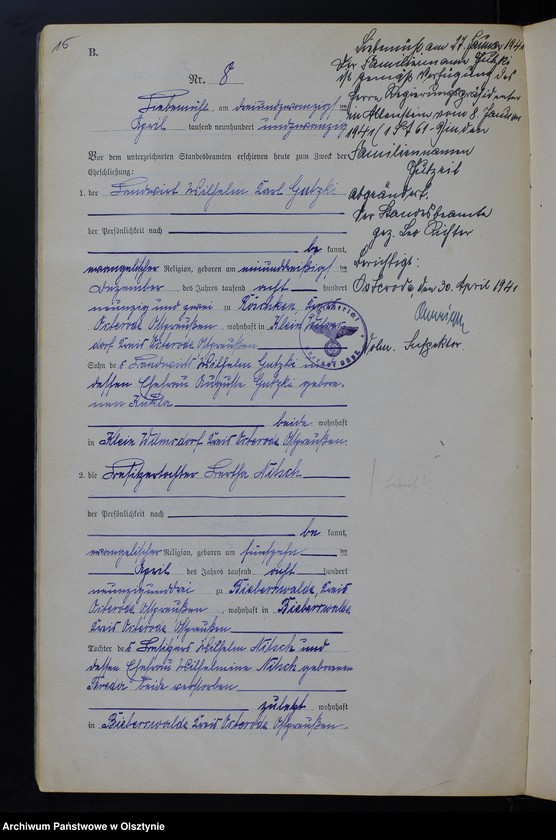 15
B.
Nr. 8
Liebemühl, am dreiundzwanzigsten
April tausend neunhundert undzwanzig
Vor dem unterzeichneten Standesbeamten erschienen heute zum Zweck der
Eheschließung:
1. der Landwirt Wilhelm Karl Gutzki
der Persönlichkeit nach
be kannt,
evangelischer Religion, geboren am einunddreißigsten
Dezember des Jahres tausend acht hundert
neunzig und zwei zu Kreis
Osterode Ostpreußen wohnhaft in Klein
dorf Kreis Osterode Ostpreußen
Sohn des Landwirts Wilhelm Gutzki und
dessen Ehefrau Auguste Gutzki gebore-
nen
beide wohnhaft
in Klein Kreis Osterode Ostpreußen.
2. die Besitzertochter Bertha Nitsch
der Persönlichkeit nach
be kannt,
evangelischer Religion, geboren am fünfzehn ten
April des Jahres tausend acht hundert
neunzigunddrei zu Bieberswalde, Kreis
Osterode Ostpreußen, wohnhaft in Bieberswalde
Kreis Osterode, Ostpreußen
Tochter des Besitzers Wilhelm Nitsch und
dessen Ehefrau Wilhelmine Nitsch geborenen
beide verstorben
zuletzt wohnhaft
in Bieberswalde Kreis Osterode Ostpreußen.
Liebemühl am 27. Januar 1941
Der Familienname Gutzki
ist gemäß Verfügung des
Herrn Regierungspräsidenten
in Allenstein vom 8. Januar
1941 in den
Familiennamen
Gutzeit
abgeändert.
Der Standesbeamte
gez. Leo Richter
Berichtigt:
Osterode, den 30. April 1941
Archiwum Państwowe w Olsztynie